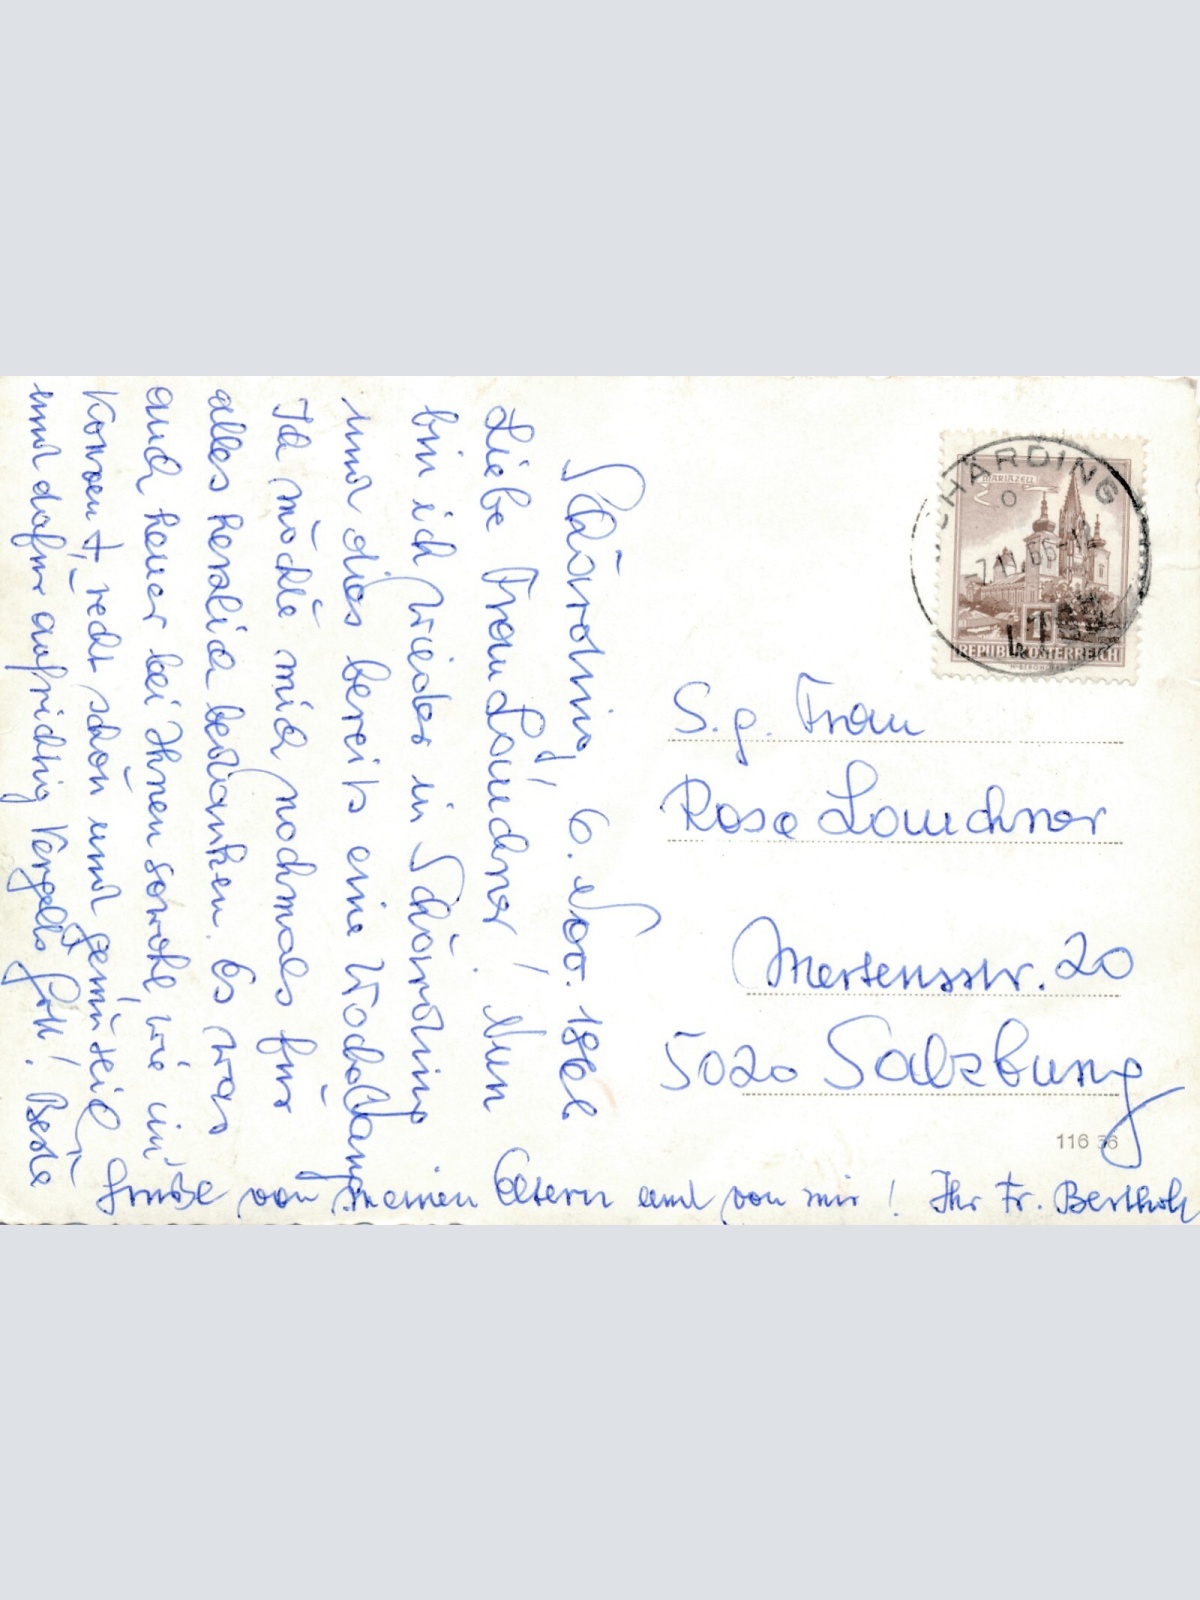 Schärding, 6. Nov. 1966
Liebe Frau Lauchner! Nun
bin ich wieder in Schärding
und dies bereits eine Woche lang.
Ich möchte mich nochmals für
alles herzlich bedanken. Es war
auch heuer bei Ihnen sowohl, wie im
Konvent, recht schön und gemütlich
und dafür aufrichtig Vergelts Gott! Beste
Grüße von meinen Eltern und von mir! Ihr Fr. Berthold
SCHÄRDING
7.11.66
MARIAZELL
REPUBLIK ÖSTERREICH
S.g. Frau
Rosa Lauchner
Mertensstr. 20
5020 Salzburg
116 36